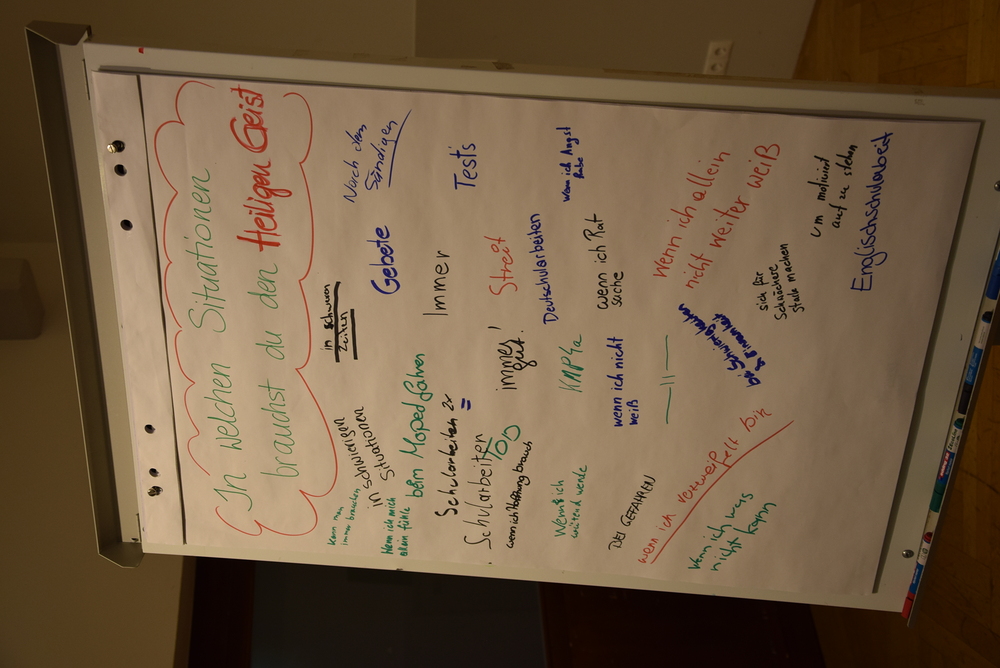 In welchen Situationen
brauchst du den Heiligen Geist
kann man
immer brauchen
in schwierigen
Situationen
in schweren
Zeiten
Nach dem
Sündigen
Wenn ich mich
allein fühle
beim Moped fahren
Gebete
Schularbeiten 2x
Immer
Tests
Schularbeiten
wenn ich Hoffnung brauch
immer
gut!
Streit
Deutschularbeiten
wenn ich Angst
habe
Wenn ich
wütend werde
wenn ich nicht
weiß
wenn ich Rat
suche
BEI GEFAHREN
—||—
Wenn ich allein
nicht weiter weiß
wenn ich verzweifelt bin
wenn ich was
nicht kann
sich für
Schwächere
stark machen
um motiviert
auf zu stehen
Englischschularbeit